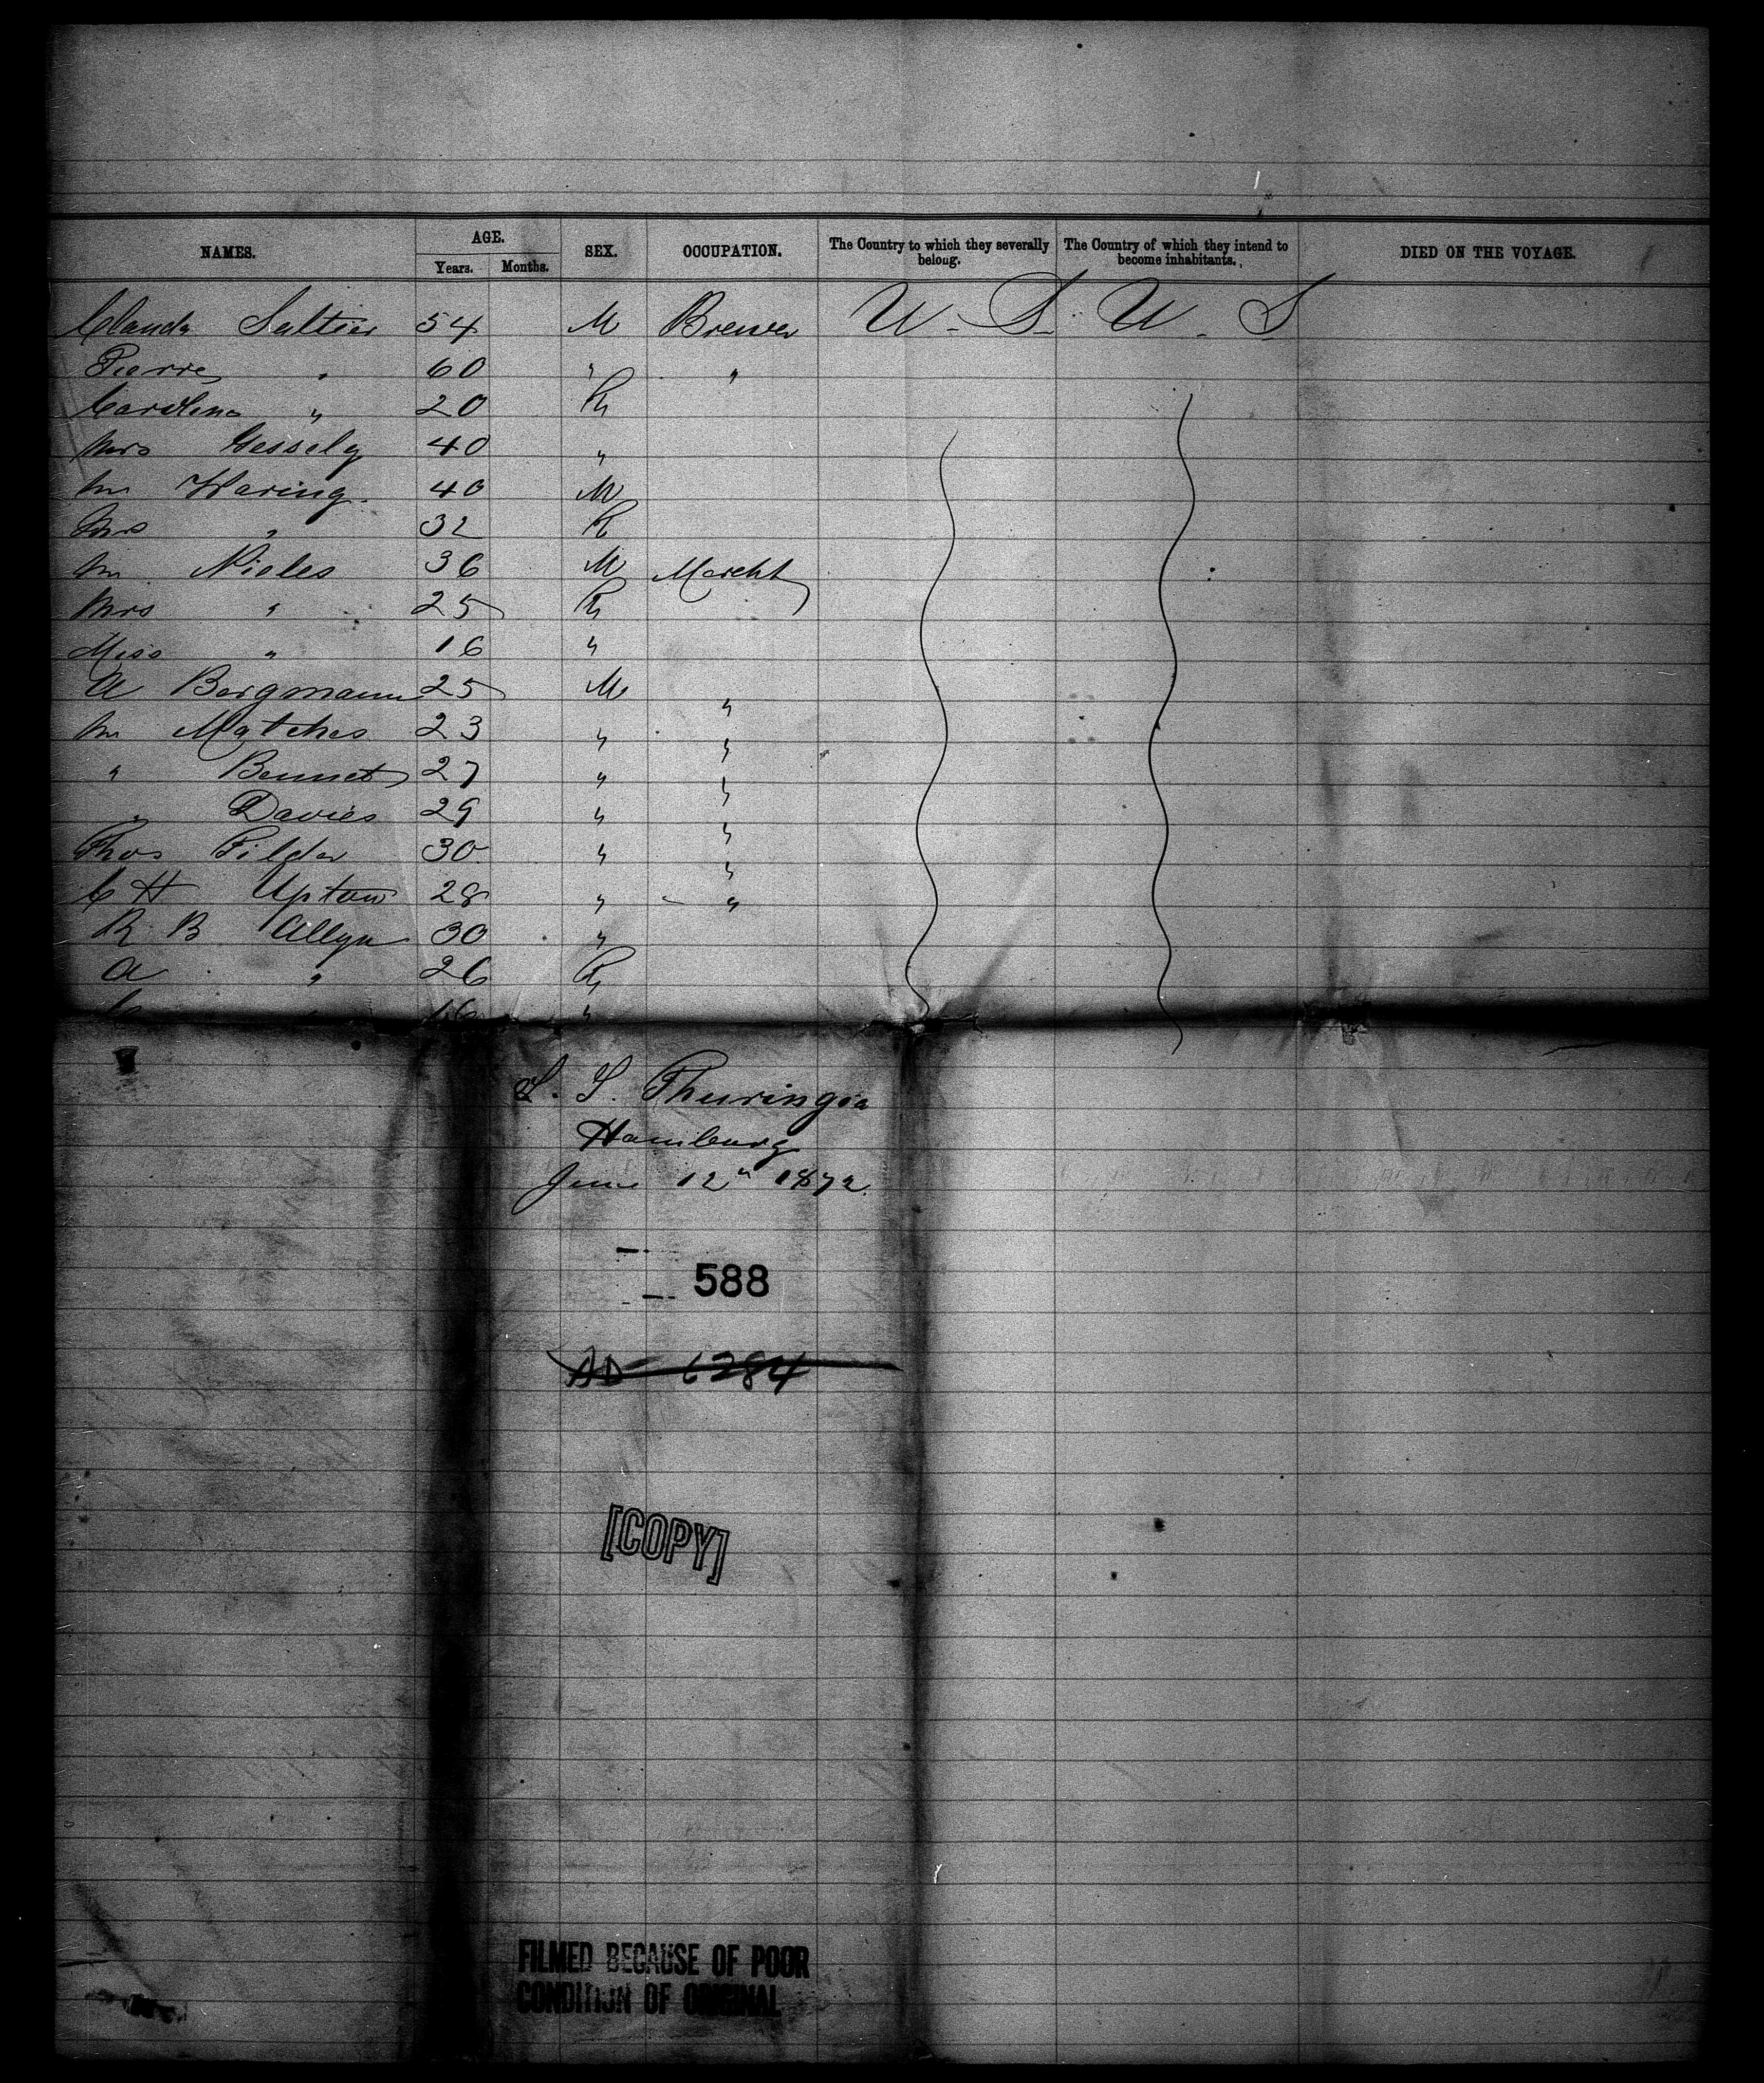 NAMES. AGE. SEX. OCCUPATION. The Country to which they severally belong. The Country of which they intend to become inhabitants. DIED ON THE VOYAGE.
Years. Months.
Claude Saltier 54 M Brewer U. S. U. S
Pierre " 60 " "
Caroline " 20 F
Mrs Gessely 40 "
Mr Waring 40 M
Mrs " 32 F
Mr Nicles 36 M Mercht
Mrs " 25 F
Miss " 16 "
A Bergmann 25 M "
Mr Matches 23 " "
" Bennet 27 " "
" Davies 29 " "
Thos Filder 30 " "
C H Upton 28 " "
R B Allyn 30 "
A " 26 F
C " 16 "
S. S. Thuringia
Hamburg
June 12" 1872.
588
AD 6284
[COPY]
FILMED BECAUSE OF POOR
CONDITION OF ORIGINAL